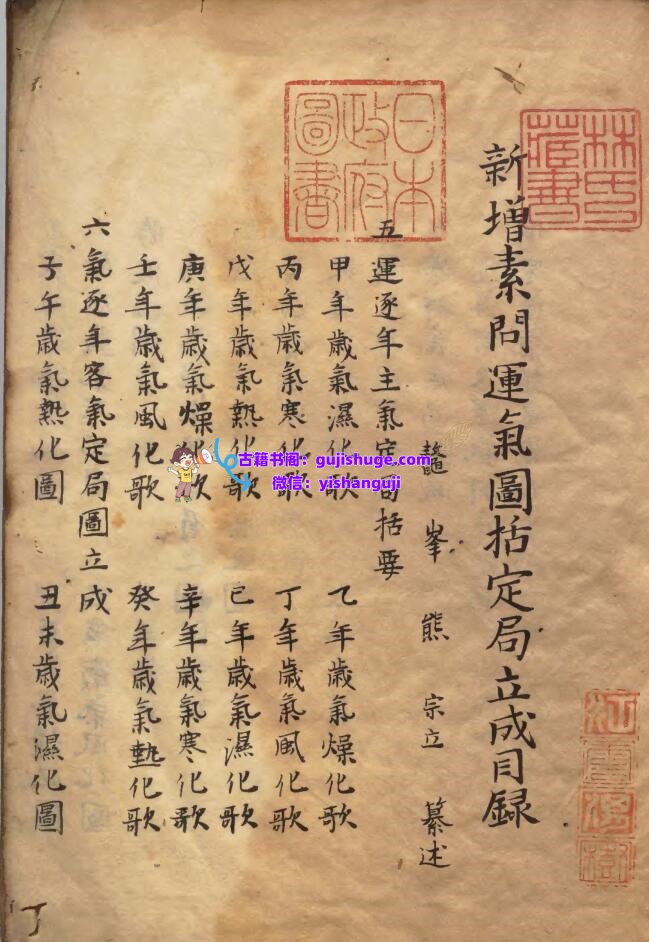 新增素問運氣圖括定局立成目録
鼇峯熊宗立纂述
五運逐年主氣定局括要
甲年歲氣濕化歌 乙年歲氣燥化歌
丙年歲氣寒化歌 丁年歲氣風化歌
戊年歲氣熱化歌 巳年歲氣濕化歌
庚年歲氣燥化歌 辛年歲氣寒化歌
壬年歲氣風化歌 癸年歲氣熱化歌
六氣逐年客氣定局圖立成
子午歲氣熱化圖 丑未歲氣濕化圖
林氏藏書
日本政府圖書
古籍书阁：gujishuge.com
微信：yishanguji